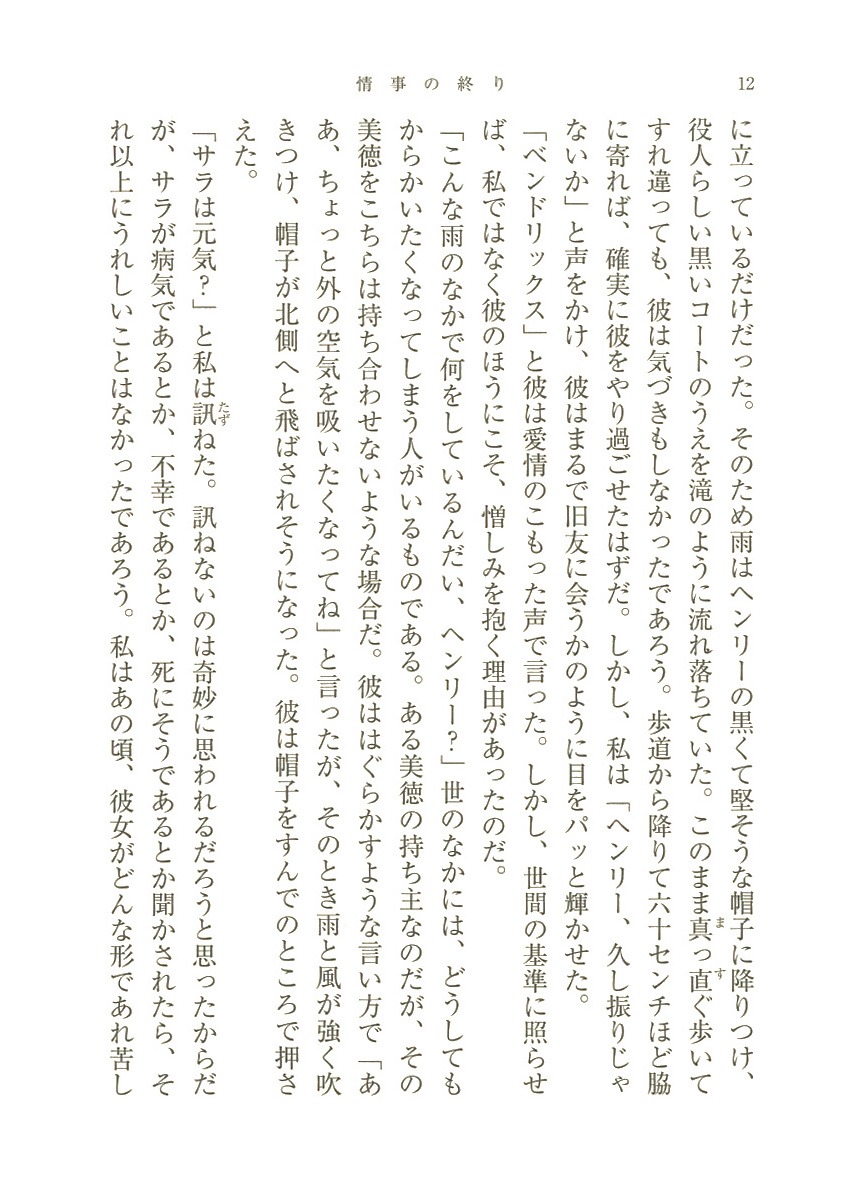 12
情事の終り
に立っているだけだった。そのため雨はヘンリーの黒くて堅そうな帽子に降りつけ、
役人らしい黒いコートのうえを滝のように流れ落ちていた。このまま真っ直ぐ歩いて
すれ違っても、彼は気づきもしなかったであろう。歩道から降りて六十センチほど脇
に寄れば、確実に彼をやり過ごせたはずだ。しかし、私は「ヘンリー、久し振りじゃ
ないか」と声をかけ、彼はまるで旧友に会うかのように目をパッと輝かせた。
「ベンドリックス」と彼は愛情のこもった声で言った。しかし、世間の基準に照らせ
ば、私ではなく彼のほうにこそ、憎しみを抱く理由があったのだ。
「こんな雨のなかで何をしているんだい、ヘンリー？」世のなかには、どうしても
からかいたくなってしまう人がいるものである。ある美徳の持ち主なのだが、その
美徳をこちらは持ち合わせないような場合だ。彼ははぐらかすような言い方で「あ
あ、ちょっと外の空気を吸いたくなってね」と言ったが、そのとき雨と風が強く吹
きつけ、帽子が北側へと飛ばされそうになった。彼は帽子をすんでのところで押さ
えた。
「サラは元気？」と私は訊ねた。訊ねないのは奇妙に思われるだろうと思ったからだ
が、サラが病気であるとか、不幸であるとか、死にそうであるとか聞かされたら、そ
れ以上にうれしいことはなかったであろう。私はあの頃、彼女がどんな形であれ苦し